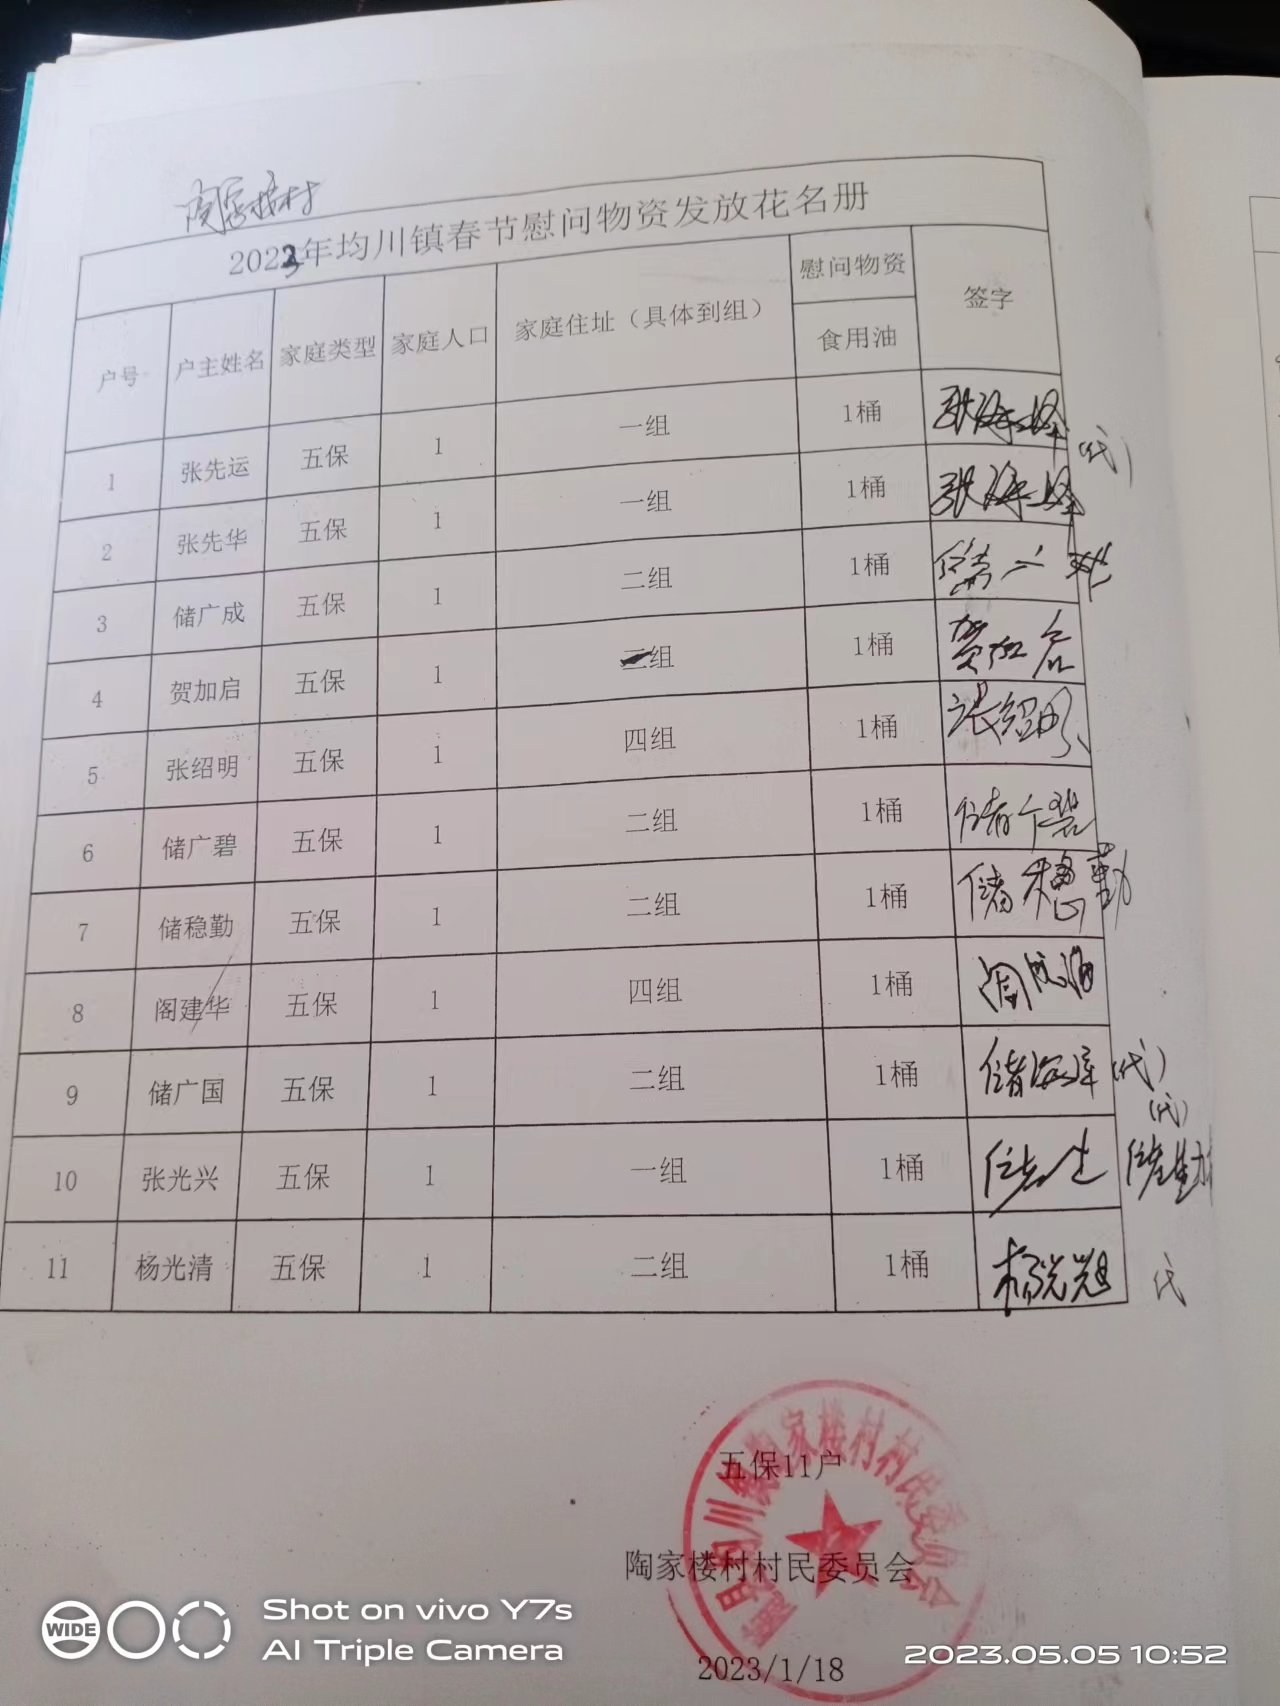 陶家楼村
2023年均川镇春节慰问物资发放花名册
户号 户主姓名 家庭类型 家庭人口 家庭住址（具体到组） 慰问物资 签字
食用油
1 张先运 五保 1 一组 1桶 张海峰（代）
2 张先华 五保 1 一组 1桶 张海峰
3 储广成 五保 1 二组 1桶
4 贺加启 五保 1 二组 1桶 贺加启
5 张绍明 五保 1 四组 1桶 张绍明
6 储广碧 五保 1 二组 1桶 储广碧
7 储稳勤 五保 1 二组 1桶 储稳勤
8 阁建华 五保 1 四组 1桶
9 储广国 五保 1 二组 1桶 储海库（代）
（代）
10 张光兴 五保 1 一组 1桶
11 杨光清 五保 1 二组 1桶 代
五保11户
陶家楼村村民委员会
2023/1/18
县均川镇陶家楼村村民委员会
WIDE
Shot on vivo Y7s
AI Triple Camera
2023.05.05 10:52